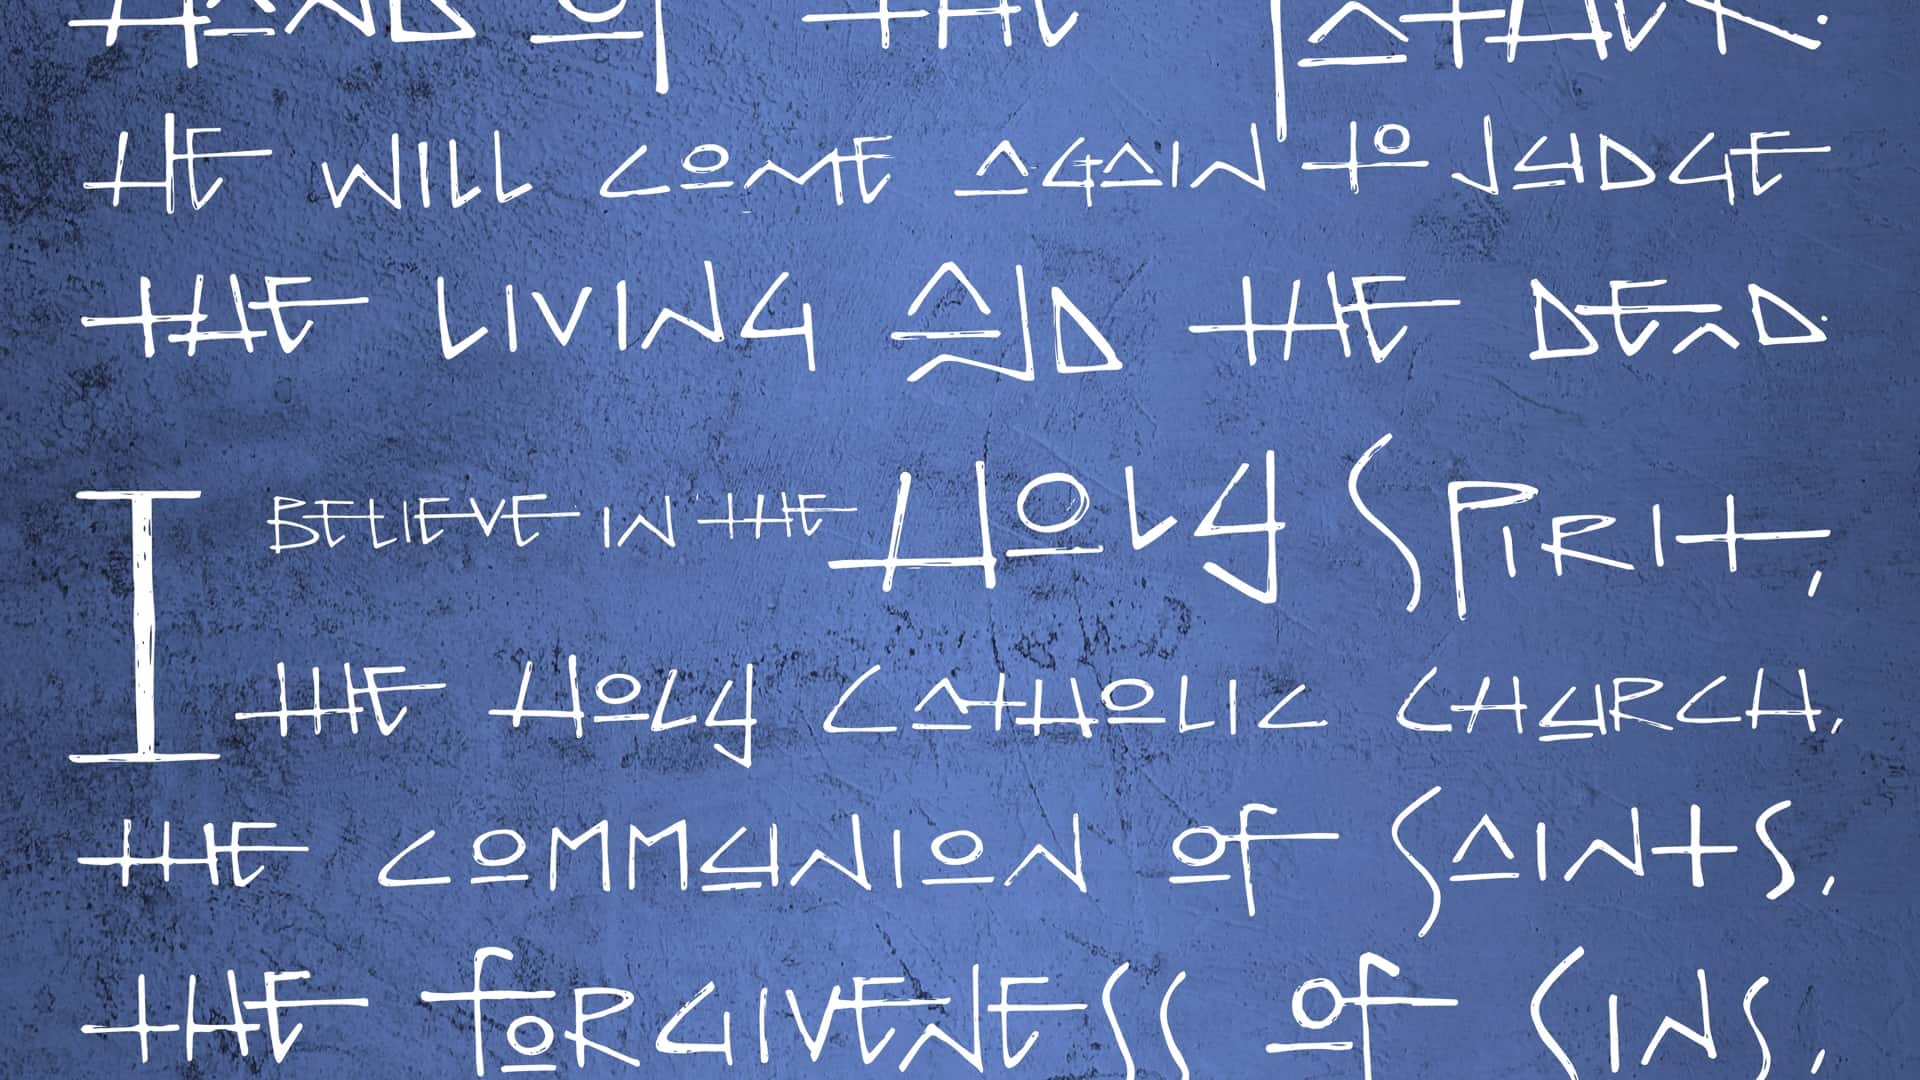 HAND OF THE FATHER.
HE WILL COME AGAIN TO JUDGE
THE LIVING AND THE DEAD.
I BELIEVE IN THE HOLY SPIRIT,
THE HOLY CATHOLIC CHURCH,
THE COMMUNION OF SAINTS,
THE FORGIVENESS OF SINS,